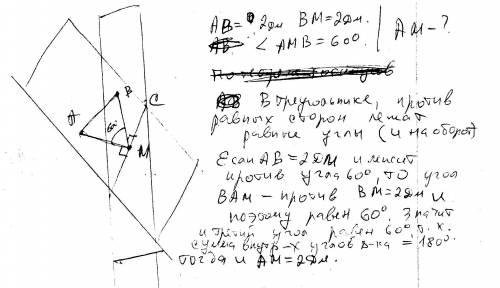 AB = 2дм BM = 2дм.
< AMB = 60°
AM - ?
В треугольнике, против
равных сторон лежат
равные углы (и наоборот)
Если AB = 2дм и лежит
против угла 60°, то угол
BAM - против BM = 2дм и
поэтому равен 60°. Значит
и третий угол равен 60° т.к.
сумма внутр-х углов Δ-ка = 180°.
тогда и AM = 2дм.
A
B
C
60°
M